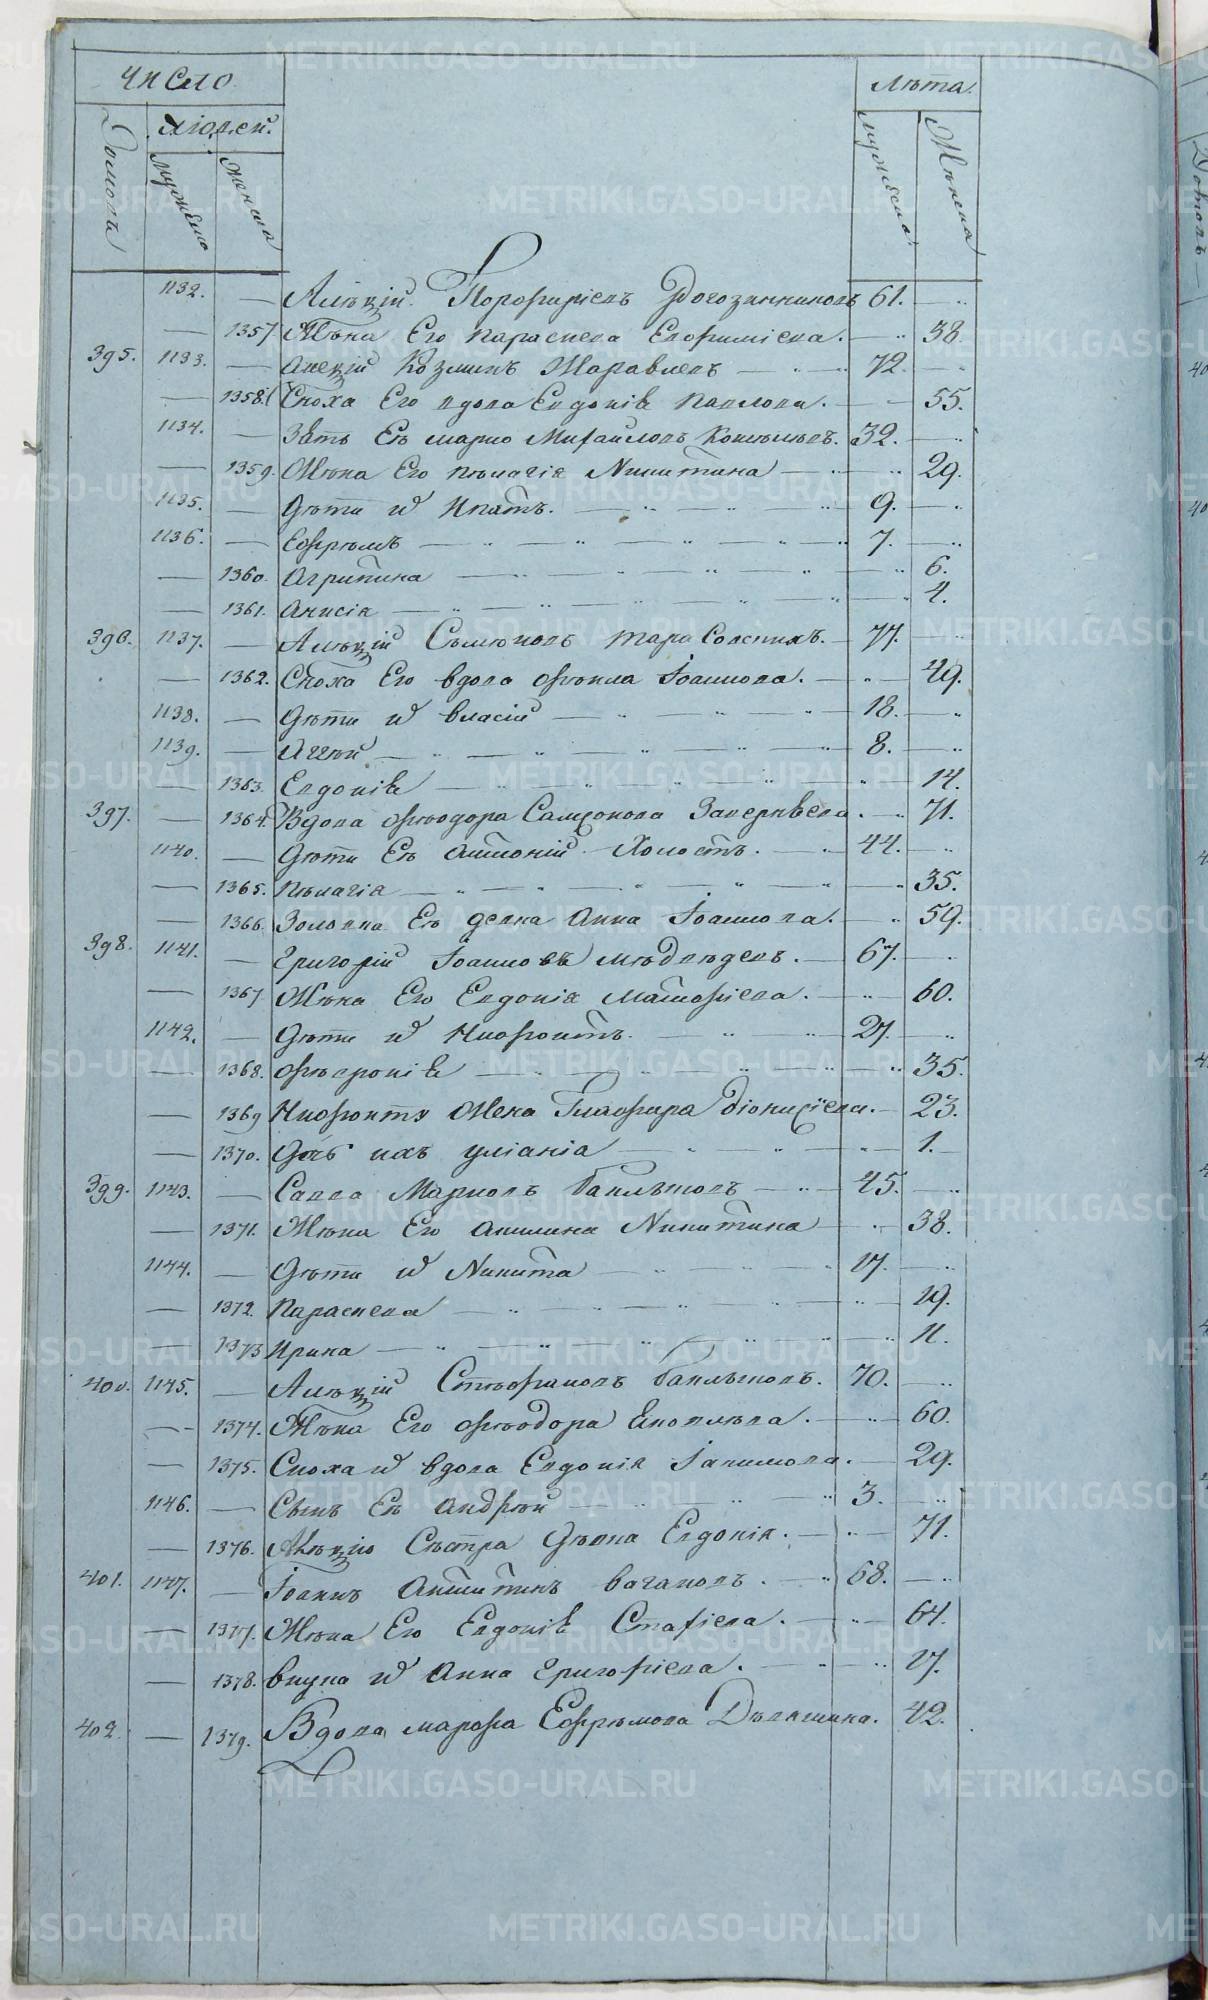 число
Лѣта.
Людей.
Домовъ
мужеско
женска
мужеска
Женска
1132. Алексій Порфиріевъ Рогозинниковъ 61.
1357 Жена Его параскева Евфиміева. 38.
395. 1133. алексій Козминъ Журавлевъ 72.
1358. Сноха Его вдова Евдокія павлова. 55.
1134. Зять Ея марко Михайловъ 32.
1359. Жена Его пелагія Никитина 29.
1135. Дѣти и Ипатъ. 9.
1136. Ефремъ 7.
1360. Агрипина 6.
1361. Анисія 4.
396. 1137. Алексій Семеновъ 77.
1362. Сноха Его вдова фекла Іоаннова. 49.
1138. Дѣти и власій 18.
1139. Аггей 8.
1363. Евдокія 14.
397. 1364. Вдова феодора Самсонова 71.
1140. Дѣти Ея антоній Холостъ. 44.
1365. пелагія 35.
1366. Золовка Ея девка Анна Іоаннова. 59.
398. 1141. Григорій Іоанновъ медведевъ. 67.
1367 Жена Его Евдокія матфіева. 60.
1142. Дѣти и Нифонтъ. 27.
1368. февронія 35.
1369 Нифонта Жена Глафира діонисіева. 23.
1370. Дочь ихъ уліанія 1.
399. 1143. Савва Марковъ 45.
1371. Жена Его акилина Никитина 38.
1144. Дѣти и Никита 17.
1372. параскева 19.
1373 Ирина 11.
400. 1145. Алексій Стефановъ 70.
1374. Жена Его феодора Яковлева. 60.
1375. Сноха и вдова Евдокія Іакимова. 29.
1146. Сынъ Ея андрей 3.
1376. Алексію Сестра Девка Евдокія. 71.
401. 1147. Іоаннъ вагановъ. 68.
1377. Жена Его Евдокія 64.
1378. внука и Анна Григоріева. 17.
402. 1379. Вдова марфа Ефремова 42.
METRIKI.GASO-URAL.RU